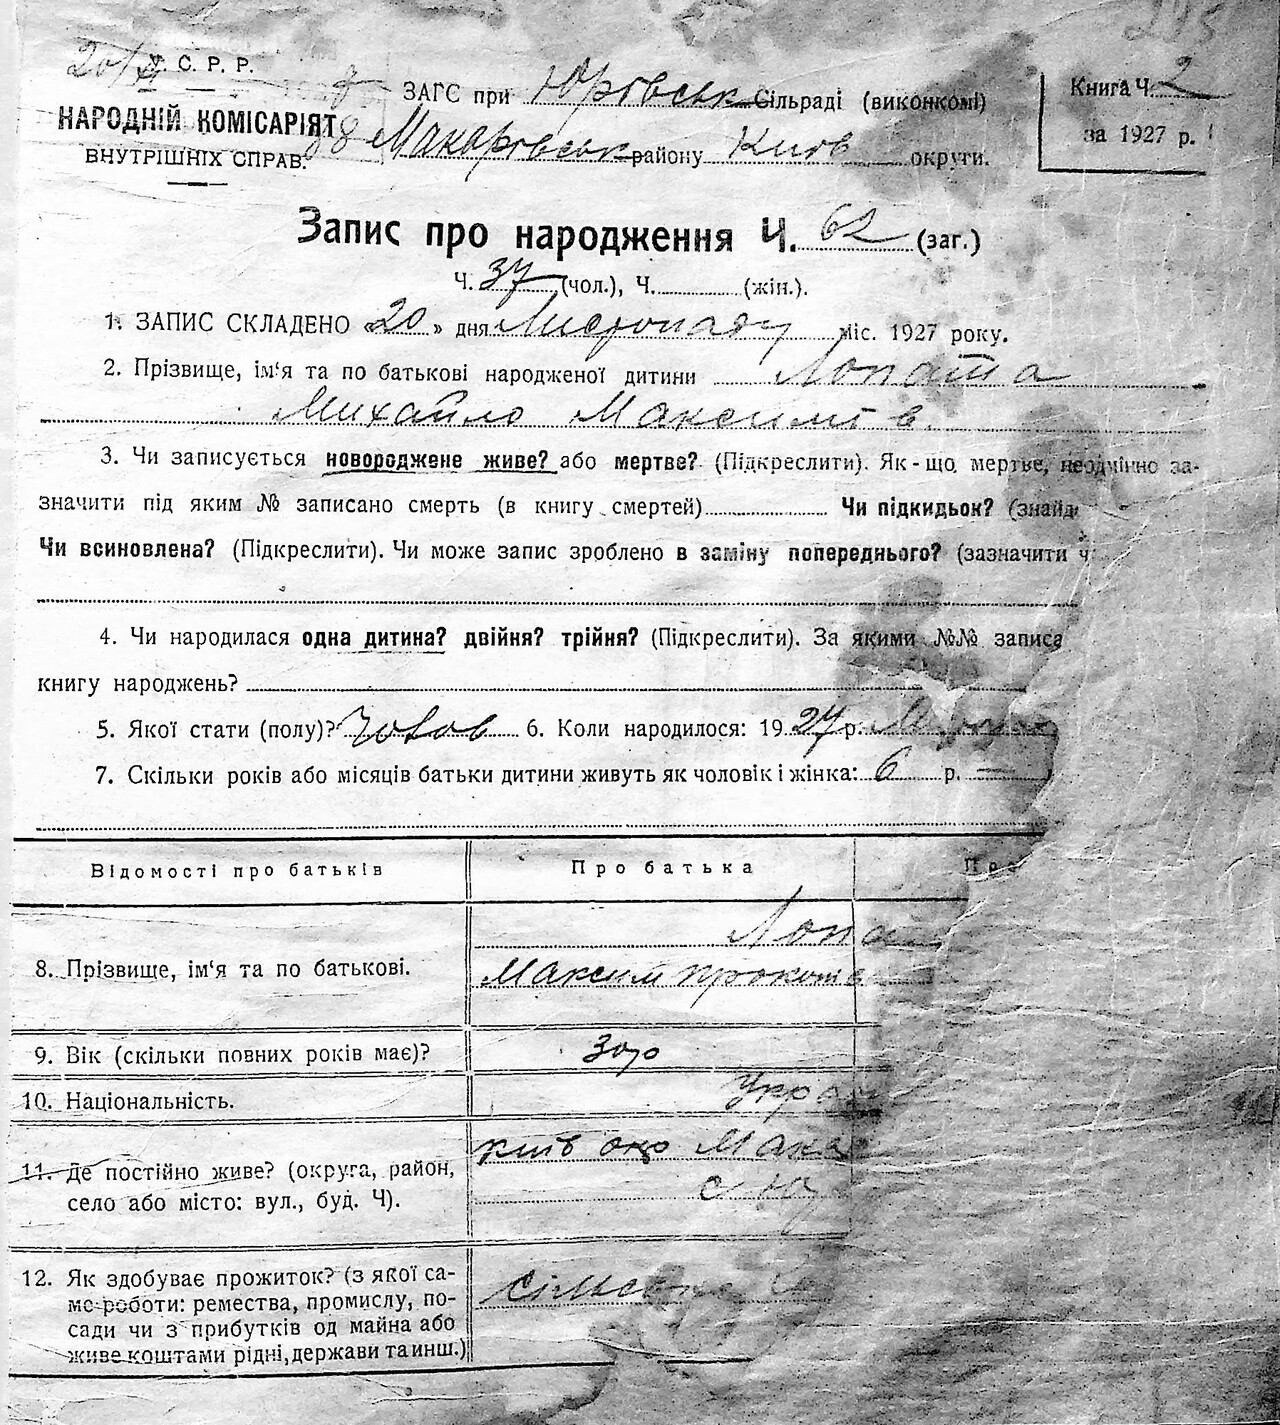 295
20/XI
У. С. Р. Р.
НАРОДНІЙ КОМІСАРІЯТ
ВНУТРІШНІХ СПРАВ.
ЗАГС при Юрівськ Сільраді (виконкомі)
Макарівськ району Київ округи.
Книга Ч. 2
за 1927 р.
Запис про народження Ч. 62 (заг.)
Ч. 37 (чол.), Ч. (жін.).
1. ЗАПИС СКЛАДЕНО «20» дня Листопаду міс. 1927 року.
2. Прізвище, ім‘я та по батькові народженої дитини Лопата
Михайло Максимів.
3. Чи записується новороджене живе? або мертве? (Підкреслити). Як-що мертве, неодмінно за-
значити під яким № записано смерть (в книгу смертей) Чи підкидьок? (знайд
Чи всиновлена? (Підкреслити). Чи може запис зроблено в заміну попереднього? (зазначити ч
4. Чи народилася одна дитина? двійня? трійня? (Підкреслити). За якими №№ записа
книгу народжень?
5. Якої стати (полу)? Чолов 6. Коли народилося: 1927 р.
7. Скільки років або місяців батьки дитини живуть як чоловік і жінка: 6 р. —
Відомості про батьків Про батька
Лопа
8. Прізвище, ім‘я та по батькові. Максим Прокопів
9. Вік (скільки повних років має)? 30 р
10. Національність. Укра
11. Де постійно живе? (округа, район, Київ окр Мака
село або місто: вул., буд. Ч). с Ю
12. Як здобуває прожиток? (з якої са-
мс роботи: ремества, промислу, по- Сільськ
сади чи з прибутків од майна або
живе коштами рідні, держави та инш.)